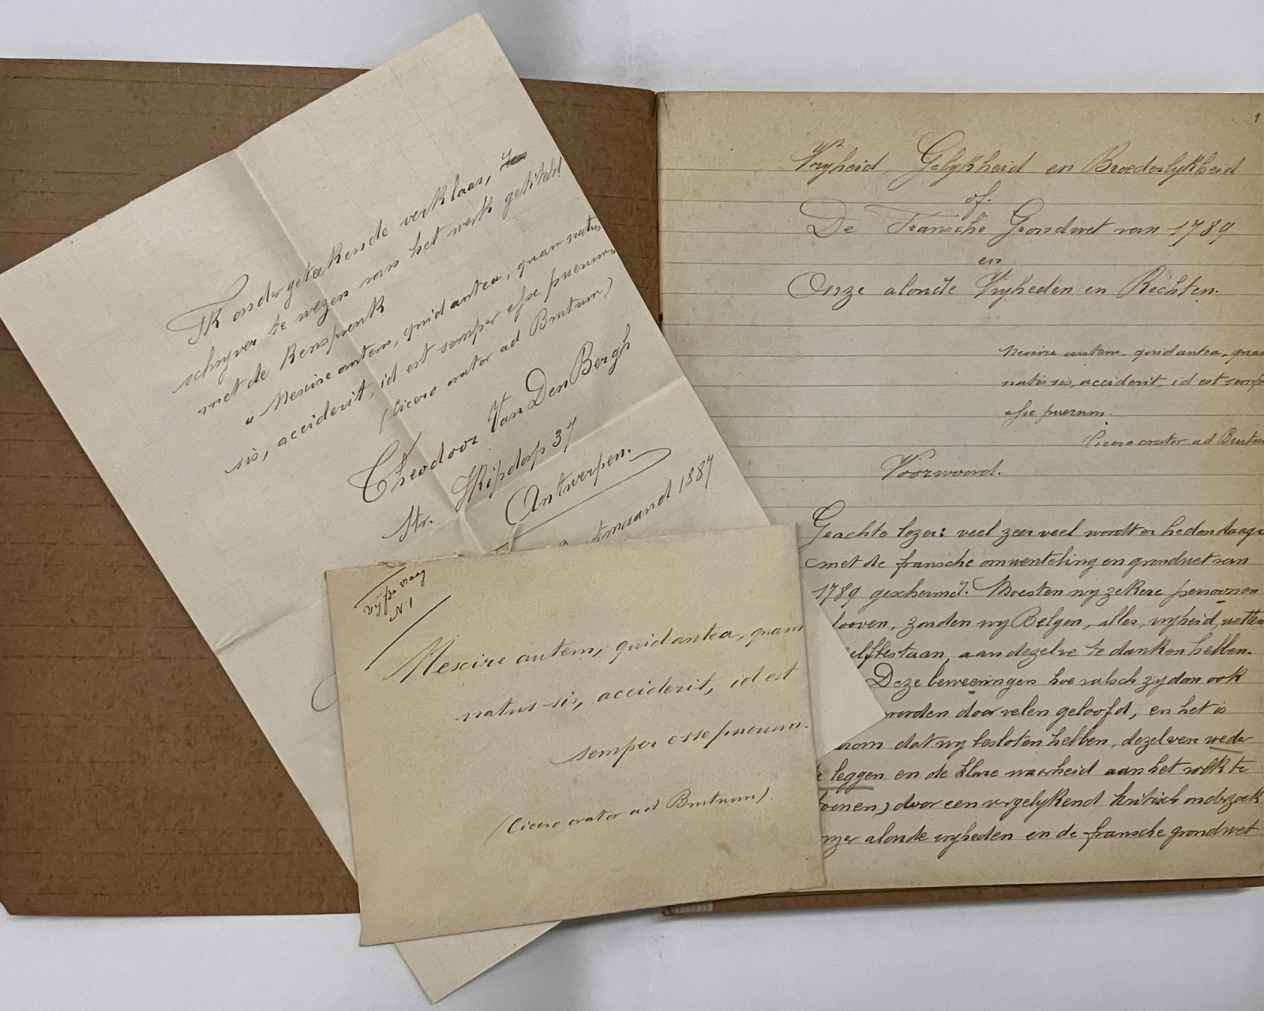 Ik ondergetekende verklaar, de
schryver te wezen van het werk getiteld
met de Kenspreuk
"Nescire autem, quid antea, quam natus
sis, acciderit, id est semper esse puerum,
(Cicero orator ad Brutum)
Theodoor Van Den Bergh
Str. 37
Antwerpen.
maand 1887
vyfde vraag
N. 1
Nescire autem, quid antea, quam
natus sis, acciderit, id est
semper esse puerum.
(Cicero orator ad Brutum).
1
Vryheid Gelykheid en Broederlykheid
of
De Fransche Grondwet van 1789
en
Onze aloude Vryheden en Rechten.
Nescire autem, quid antea, quam
natus sis, acciderit, id est semp
esse puerum.
Cicero orator ad Brutum
Voorwoord.
Geachte lezer: veel zeer veel wordt er hedendaags
met de fransche omwenteling en grondwet van
1789 geschermd. Moesten wy zekere personen
looven, zouden wy Belgen, alles, vryheid, wetten
zelfbestaan, aan dezelve te danken hebben.
Deze beweeringen hoe valsch zy dan ook
worden door velen geloofd, en het is
arom dat wy besloten hebben, dezelven weder
te leggen en de klare waarheid aan het volk te
toonen, door een vergelykend kritisch onderzoek
onzer aloude vryheden en de fransche grondwet